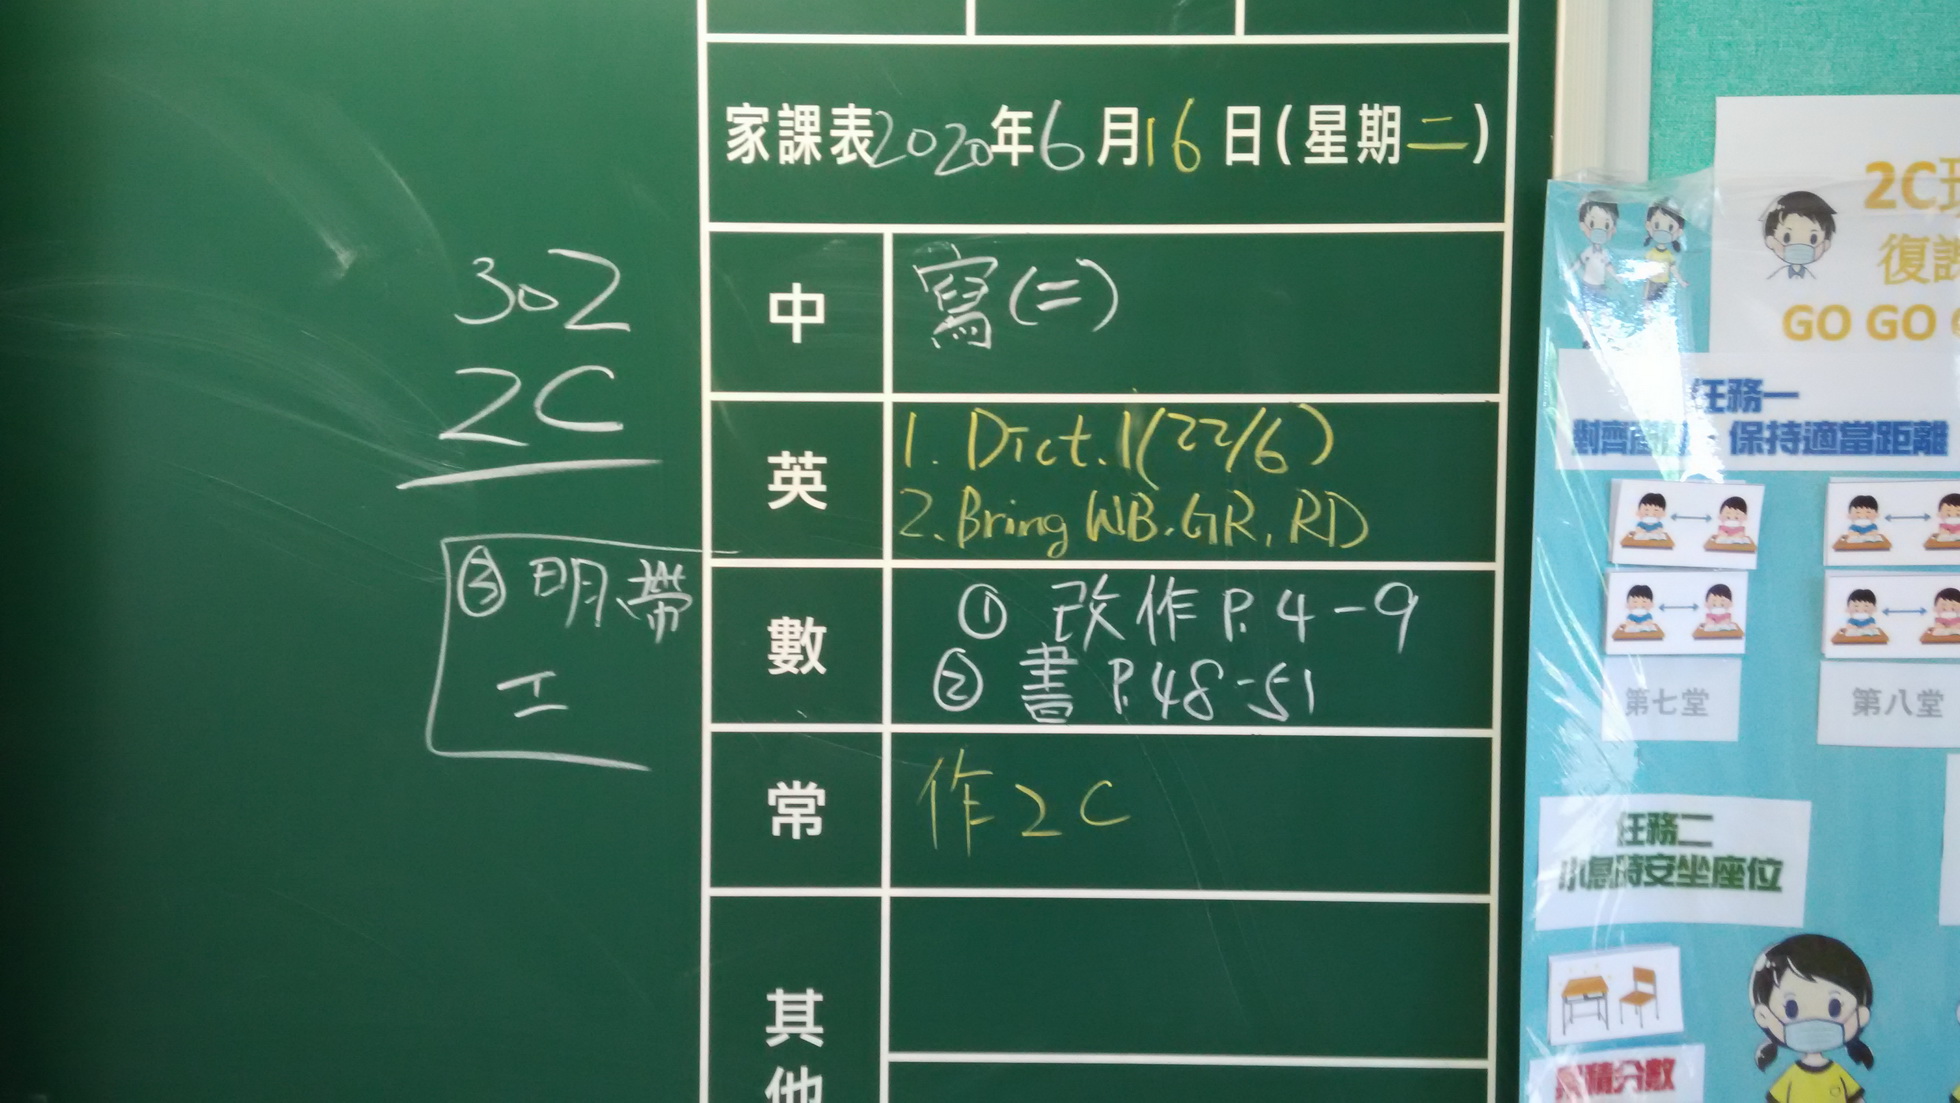 家課表2020年6月16日(星期二)
302
2C
中
寫(二)
英
1. Dict.1(22/6)
2. Bring WB. GR, RD
數
① 改作 P.4-9
② 書 P.48-51
③ 明帶
工
常
作2C
其他
2C
GO GO
任務一
保持適當距離
第七堂
第八堂
任務二
小息時安坐座位
積分數